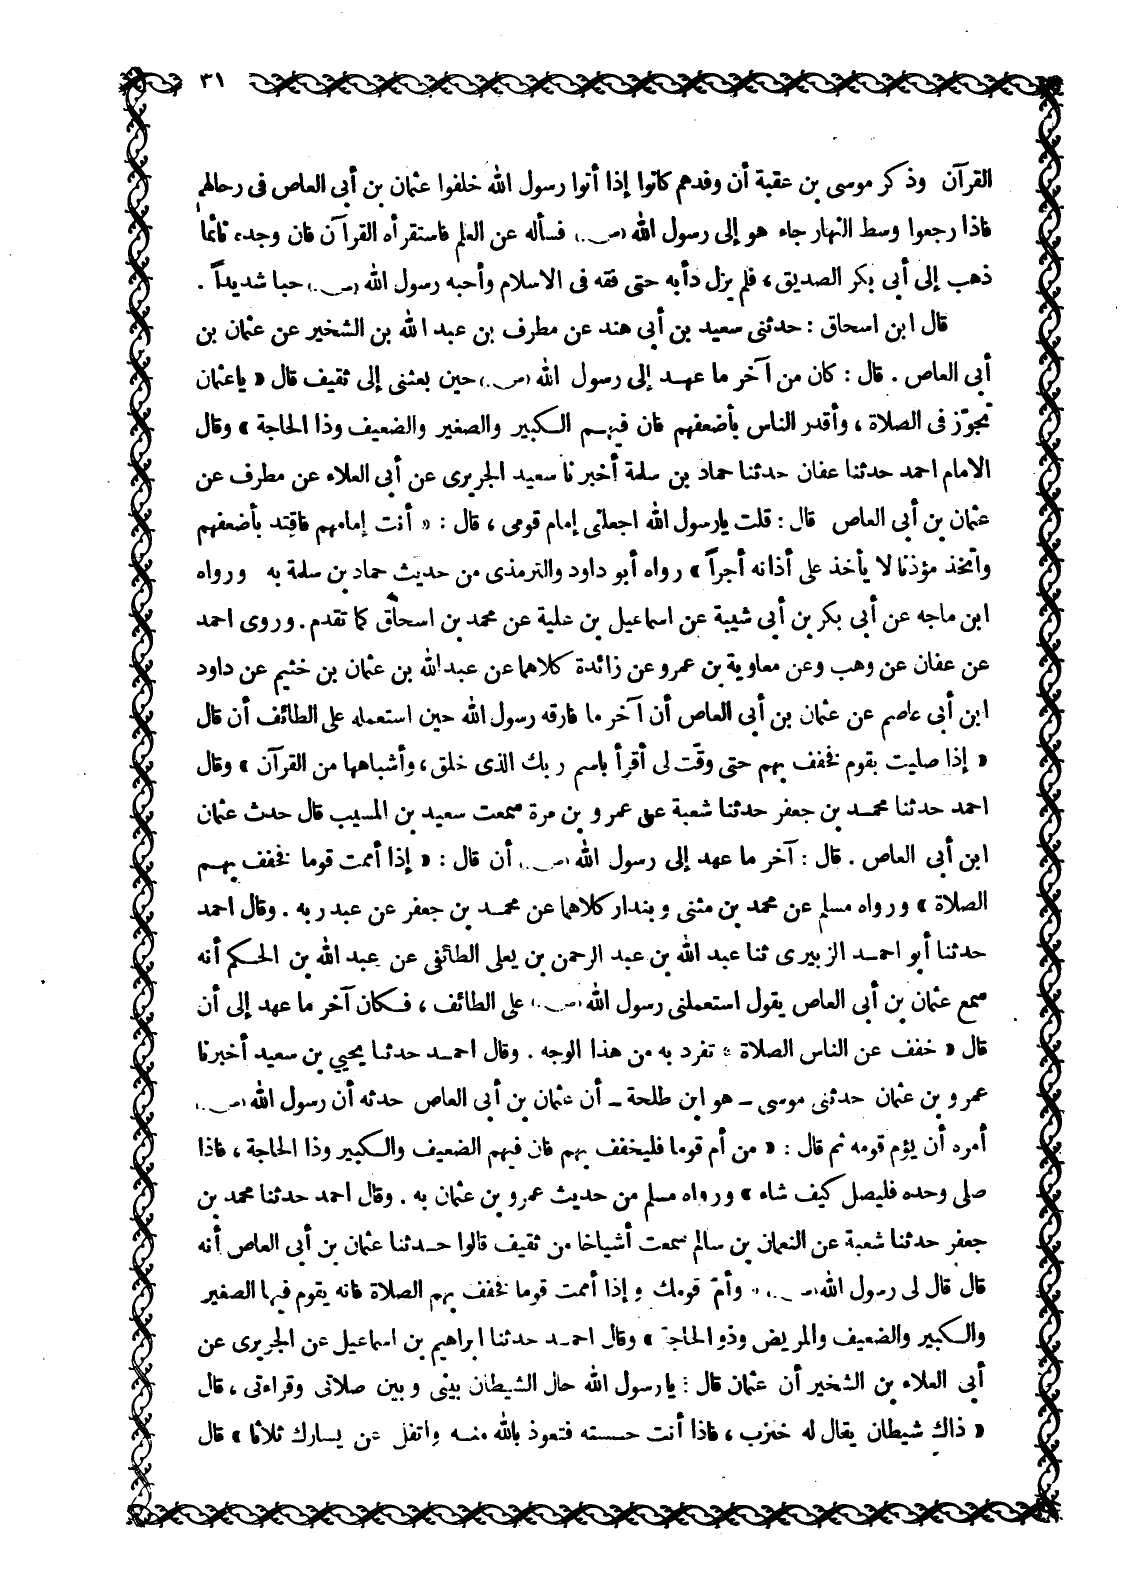 ٣١
القرآن وذكر موسى بن عقبة أن وفدهم كانوا إذا أتوا رسول الله خلفوا عثمان بن أبى العاص فى رحالهم
فاذا رجعوا وسط النهار جاء هو إلى رسول الله (ص) فسأله عن العلم فاستقرأه القرآن فان وجده نائما
ذهب إلى أبى بكر الصديق ، فلم يزل دأبه حتى فقه فى الاسلام وأحبه رسول الله (ص) حبا شديداً .
قال ابن اسحاق : حدثنى سعيد بن أبى هند عن مطرف بن عبد الله بن الشخير عن عثمان بن
أبى العاص . قال : كان من آخر ما عهد إلى رسول الله (ص) حين بعثنى إلى ثقيف قال « ياعثمان
تجوّز فى الصلاة ، وأقدر الناس بأضعفهم فان فيهم الكبير والصغير والضعيف وذا الحاجة » وقال
الامام احمد حدثنا عفان حدثنا حماد بن سلمة أخبرنا سعيد الجريرى عن أبى العلاء عن مطرف عن
عثمان بن أبى العاص قال : قلت يارسول الله اجعلنى إمام قومى ، قال : « أنت إمامهم فاقتد بأضعفهم
واتخذ مؤذنا لا يأخذ على أذانه أجراً » رواه أبو داود والترمذى من حديث حماد بن سلمة به ورواه
ابن ماجه عن أبى بكر بن أبى شيبة عن اسماعيل بن علية عن محمد بن اسحاق كما تقدم . وروى احمد
عن عفان عن وهب وعن معاوية بن عمرو عن زائدة كلاهما عن عبد الله بن عثمان بن خثيم عن داود
ابن أبى عاصم عن عثمان بن أبى العاص أن آخر ما فارقه رسول الله حين استعمله على الطائف أن قال
« إذا صليت بقوم فخفف بهم حتى وقّت لى أقرأ باسم ربك الذى خلق ، وأشباهها من القرآن » وقال
احمد حدثنا محمد بن جعفر حدثنا شعبة عن عمرو بن مرة سمعت سعيد بن المسيب قال حدث عثمان
ابن أبى العاص . قال : آخر ما عهد إلى رسول الله (ص) أن قال : « إذا أممت قوما فخفف بهم
الصلاة » ورواه مسلم عن محمد بن مثنى وبندار كلاهما عن محمد بن جعفر عن عبد ربه . وقال احمد
حدثنا أبو احمد الزبيرى ثنا عبد الله بن عبد الرحمن بن يعلى الطائفى عن عبد الله بن الحكم أنه
سمع عثمان بن أبى العاص يقول استعملنى رسول الله (ص) على الطائف ، فكان آخر ما عهد إلى أن
قال « خفف عن الناس الصلاة » تفرد به من هذا الوجه . وقال احمد حدثنا يحيي بن سعيد أخبرنا
عمرو بن عثمان حدثنى موسى ـ هو ابن طلحة ـ أن عثمان بن أبى العاص حدثه أن رسول الله (ص)
أمره أن يؤم قومه ثم قال : « من أم قوما فليخفف بهم فان فيهم الضعيف والكبير وذا الحاجة ، فاذا
صلى وحده فليصل كيف شاء » ورواه مسلم من حديث عمرو بن عثمان به . وقال احمد حدثنا محمد بن
جعفر حدثنا شعبة عن النعمان بن سالم سمعت أشياخا من ثقيف قالوا حدثنا عثمان بن أبى العاص أنه
قال قال لى رسول الله (ص) « وأمّ قومك وإذا أممت قوما فخفف بهم الصلاة فانه يقوم فيها الصغير
والكبير والضعيف والمريض وذو الحاجة » وقال احمد حدثنا ابراهيم بن اسماعيل عن الجريرى عن
أبى العلاء بن الشخير أن عثمان قال : يارسول الله حال الشيطان بينى وبين صلاتى وقراءتى ، قال
« ذاك شيطان يقال له خنزب ، فاذا أنت حسسته فتعوذ بالله منه واتفل عن يسارك ثلاثا » قال